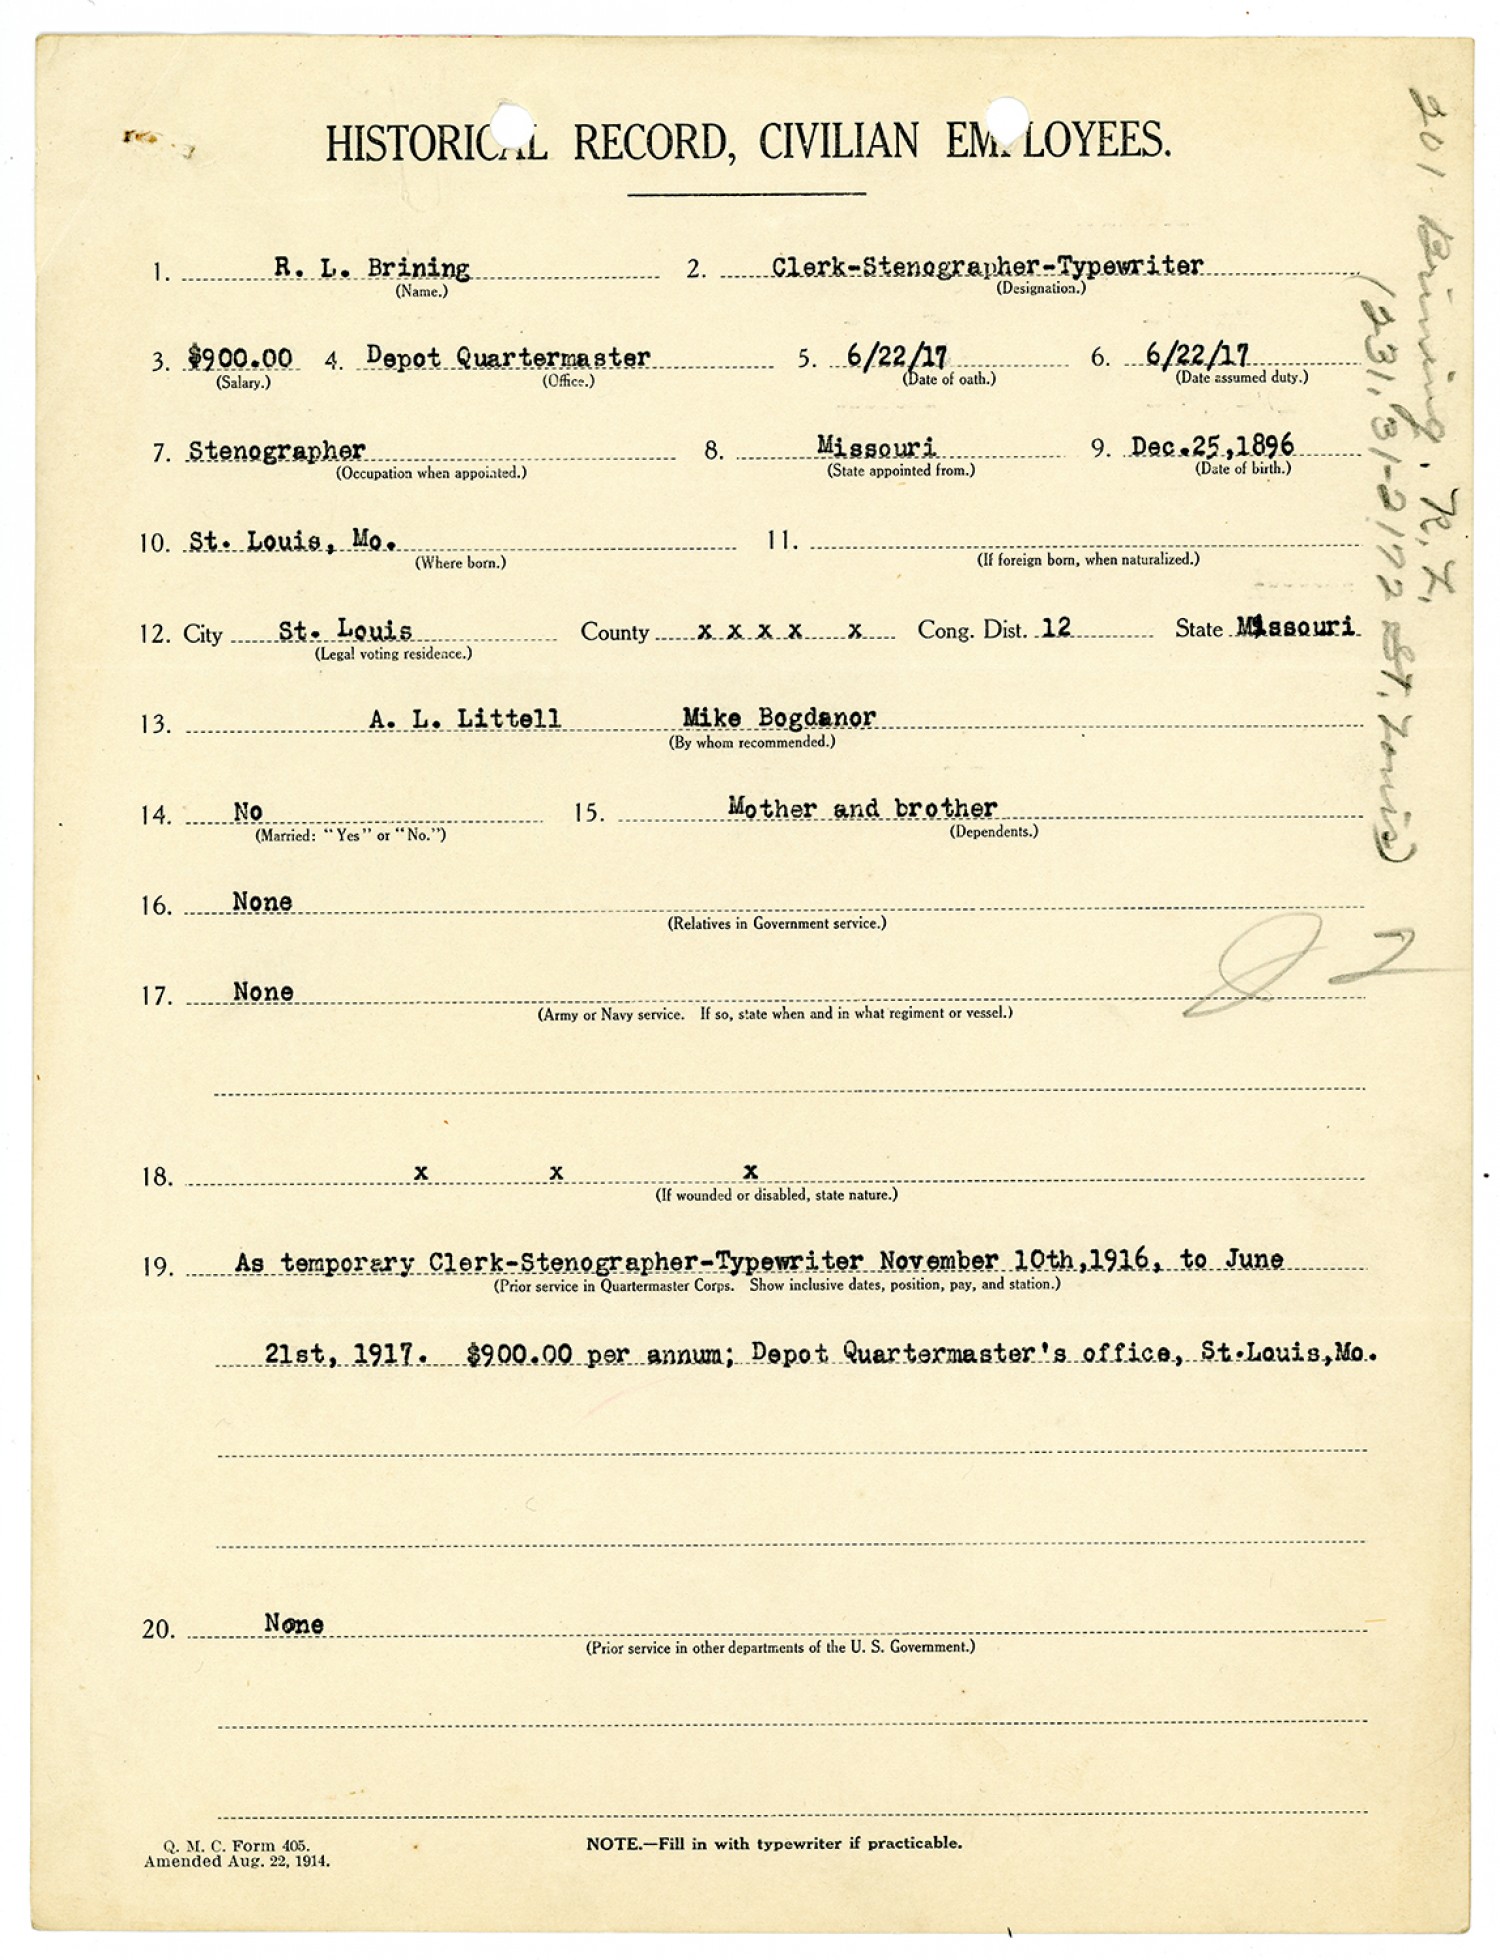 HISTORICAL RECORD, CIVILIAN EMPLOYEES.
1. R. L. Brining 2. Clerk-Stenographer-Typewriter
(Name.) (Designation.)
3. $900.00 4. Depot Quartermaster 5. 6/22/17 6. 6/22/17
(Salary.) (Office.) (Date of oath.) (Date assumed duty.)
7. Stenographer 8. Missouri 9. Dec.25,1896
(Occupation when appointed.) (State appointed from.) (Date of birth.)
10. St. Louis, Mo. 11.
(Where born.) (If foreign born, when naturalized.)
12. City St. Louis County x x x x x Cong. Dist. 12 State Missouri
(Legal voting residence.)
13. A. L. Littell Mike Bogdanor
(By whom recommended.)
14. No 15. Mother and brother
(Married: "Yes" or "No.") (Dependents.)
16. None
(Relatives in Government service.)
17. None
(Army or Navy service. If so, state when and in what regiment or vessel.)
18. x x x
(If wounded or disabled, state nature.)
19. As temporary Clerk-Stenographer-Typewriter November 10th,1916, to June
(Prior service in Quartermaster Corps. Show inclusive dates, position, pay, and station.)
21st, 1917. $900.00 per annum; Depot Quartermaster's office, St.Louis,Mo.
20. None
(Prior service in other departments of the U. S. Government.)
Q. M. C. Form 405.
Amended Aug. 22, 1914.
NOTE.—Fill in with typewriter if practicable.
201 Brining, R. L.
(231.31-2172 St. Louis)